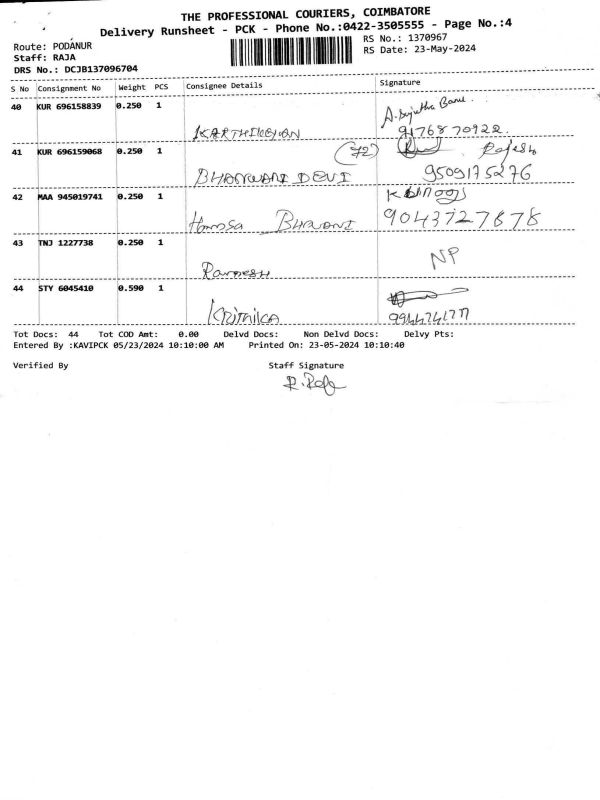 THE PROFESSIONAL COURIERS, COIMBATORE
Delivery Runsheet - PCK - Phone No.:0422-3505555 - Page No.:4
Route: PODANUR
RS No.: 1370967
Staff: RAJA
RS Date: 23-May-2024
DRS No.: DCJB137096704
S No Consignment No Weight PCS Consignee Details Signature
40 KUR 696158839 0.250 1
KARTHIKEYAN 9176870922.
41 KUR 696159068 0.250 1 (72) Rajesh
BHANWARI DEVI 9509175276
42 MAA 945019741 0.250 1
9043727878
43 TNJ 1227738 0.250 1 NP
Ramesh
44 STY 6045410 0.590 1
KRITHIKA
Tot Docs: 44 Tot COD Amt: 0.00 Delvd Docs: Non Delvd Docs: Delvy Pts:
Entered By :KAVIPCK 05/23/2024 10:10:00 AM Printed On: 23-05-2024 10:10:40
Verified By Staff Signature